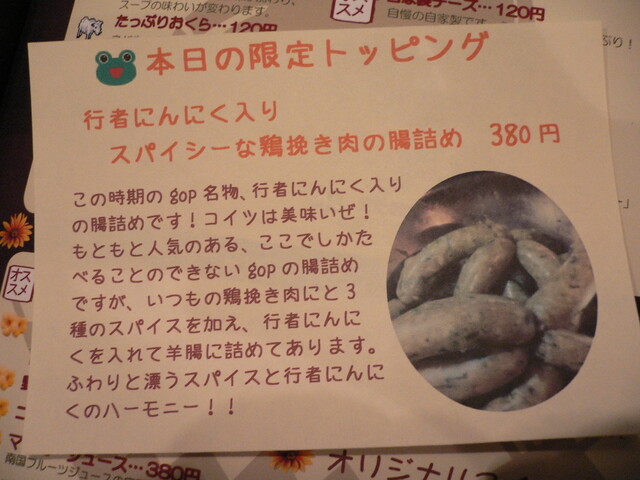 スープの味わいが変わります。
たっぷりおくら…120円
オススメ
チーズ…120円
自慢の自家製です
本日の限定トッピング
行者にんにく入り
スパイシーな鶏挽き肉の腸詰め 380円
この時期の gop 名物、行者にんにく入り
の腸詰めです！コイツは美味いぜ！
もともと人気のある、ここでしかた
べることのできない gop の腸詰め
ですが、いつもの鶏挽き肉にと 3
種のスパイスを加え、行者にんに
くを入れて羊腸に詰めてあります。
ふわりと漂うスパイスと行者にんに
くのハーモニー！！
オススメ
ジュース…380円
南国フルーツジュースの
オリジナル